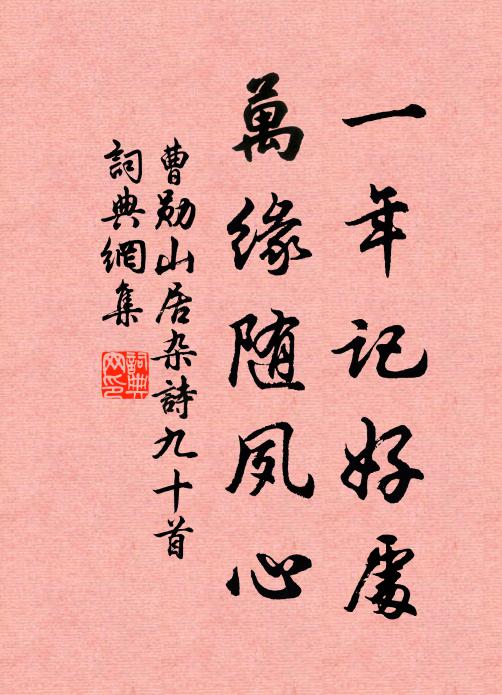 一年記好處
萬緣随夙心
曹勛山居杂詩九十首
詞典網集
詞典
网印